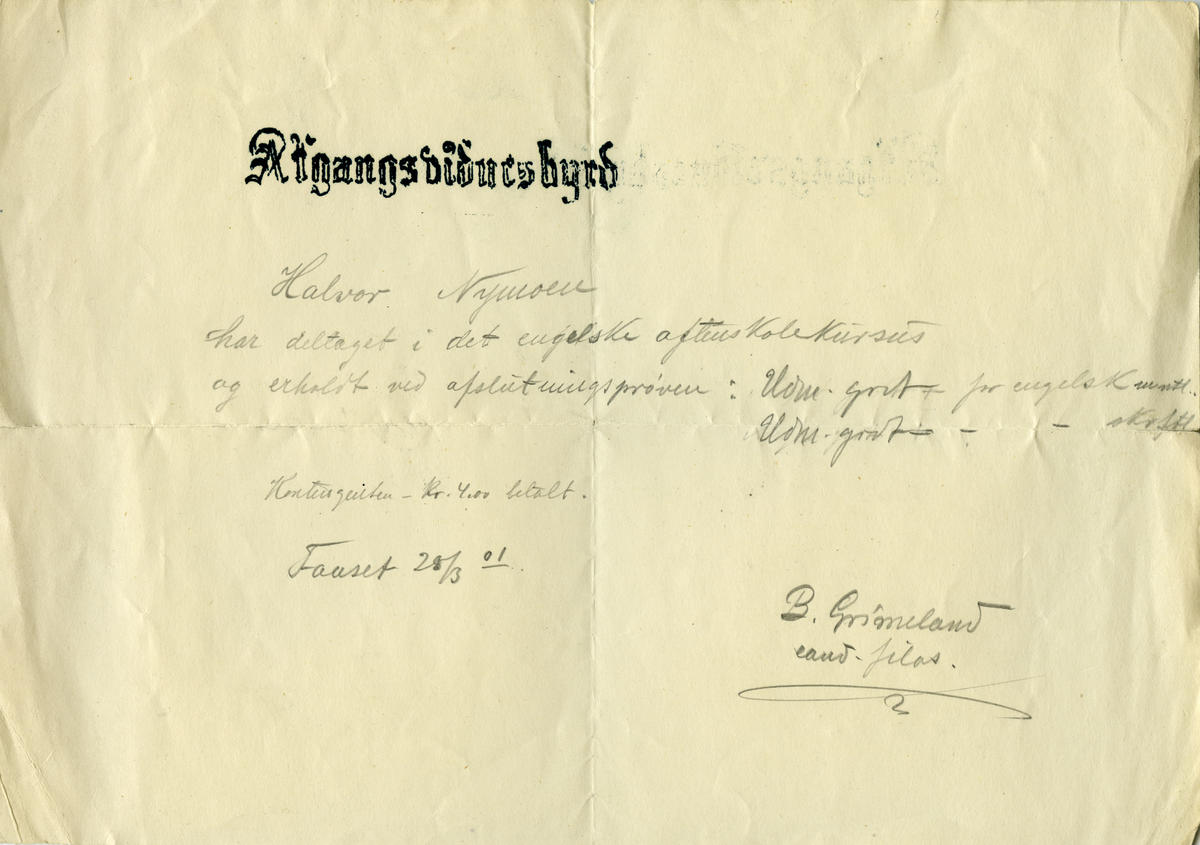 Afgangsvidnesbyrd
Halvor Nymoen
har deltaget i det engelske aftenskolekursus
og erholdt ved afslutningsprøven : Udm. godt + for engelsk mundtl.
Udm. godt ÷ - - skriftl.
Kontingenten – kr. 4.00 betalt.
Fauset 28/3 01.
B. Grimeland
cand. filos.